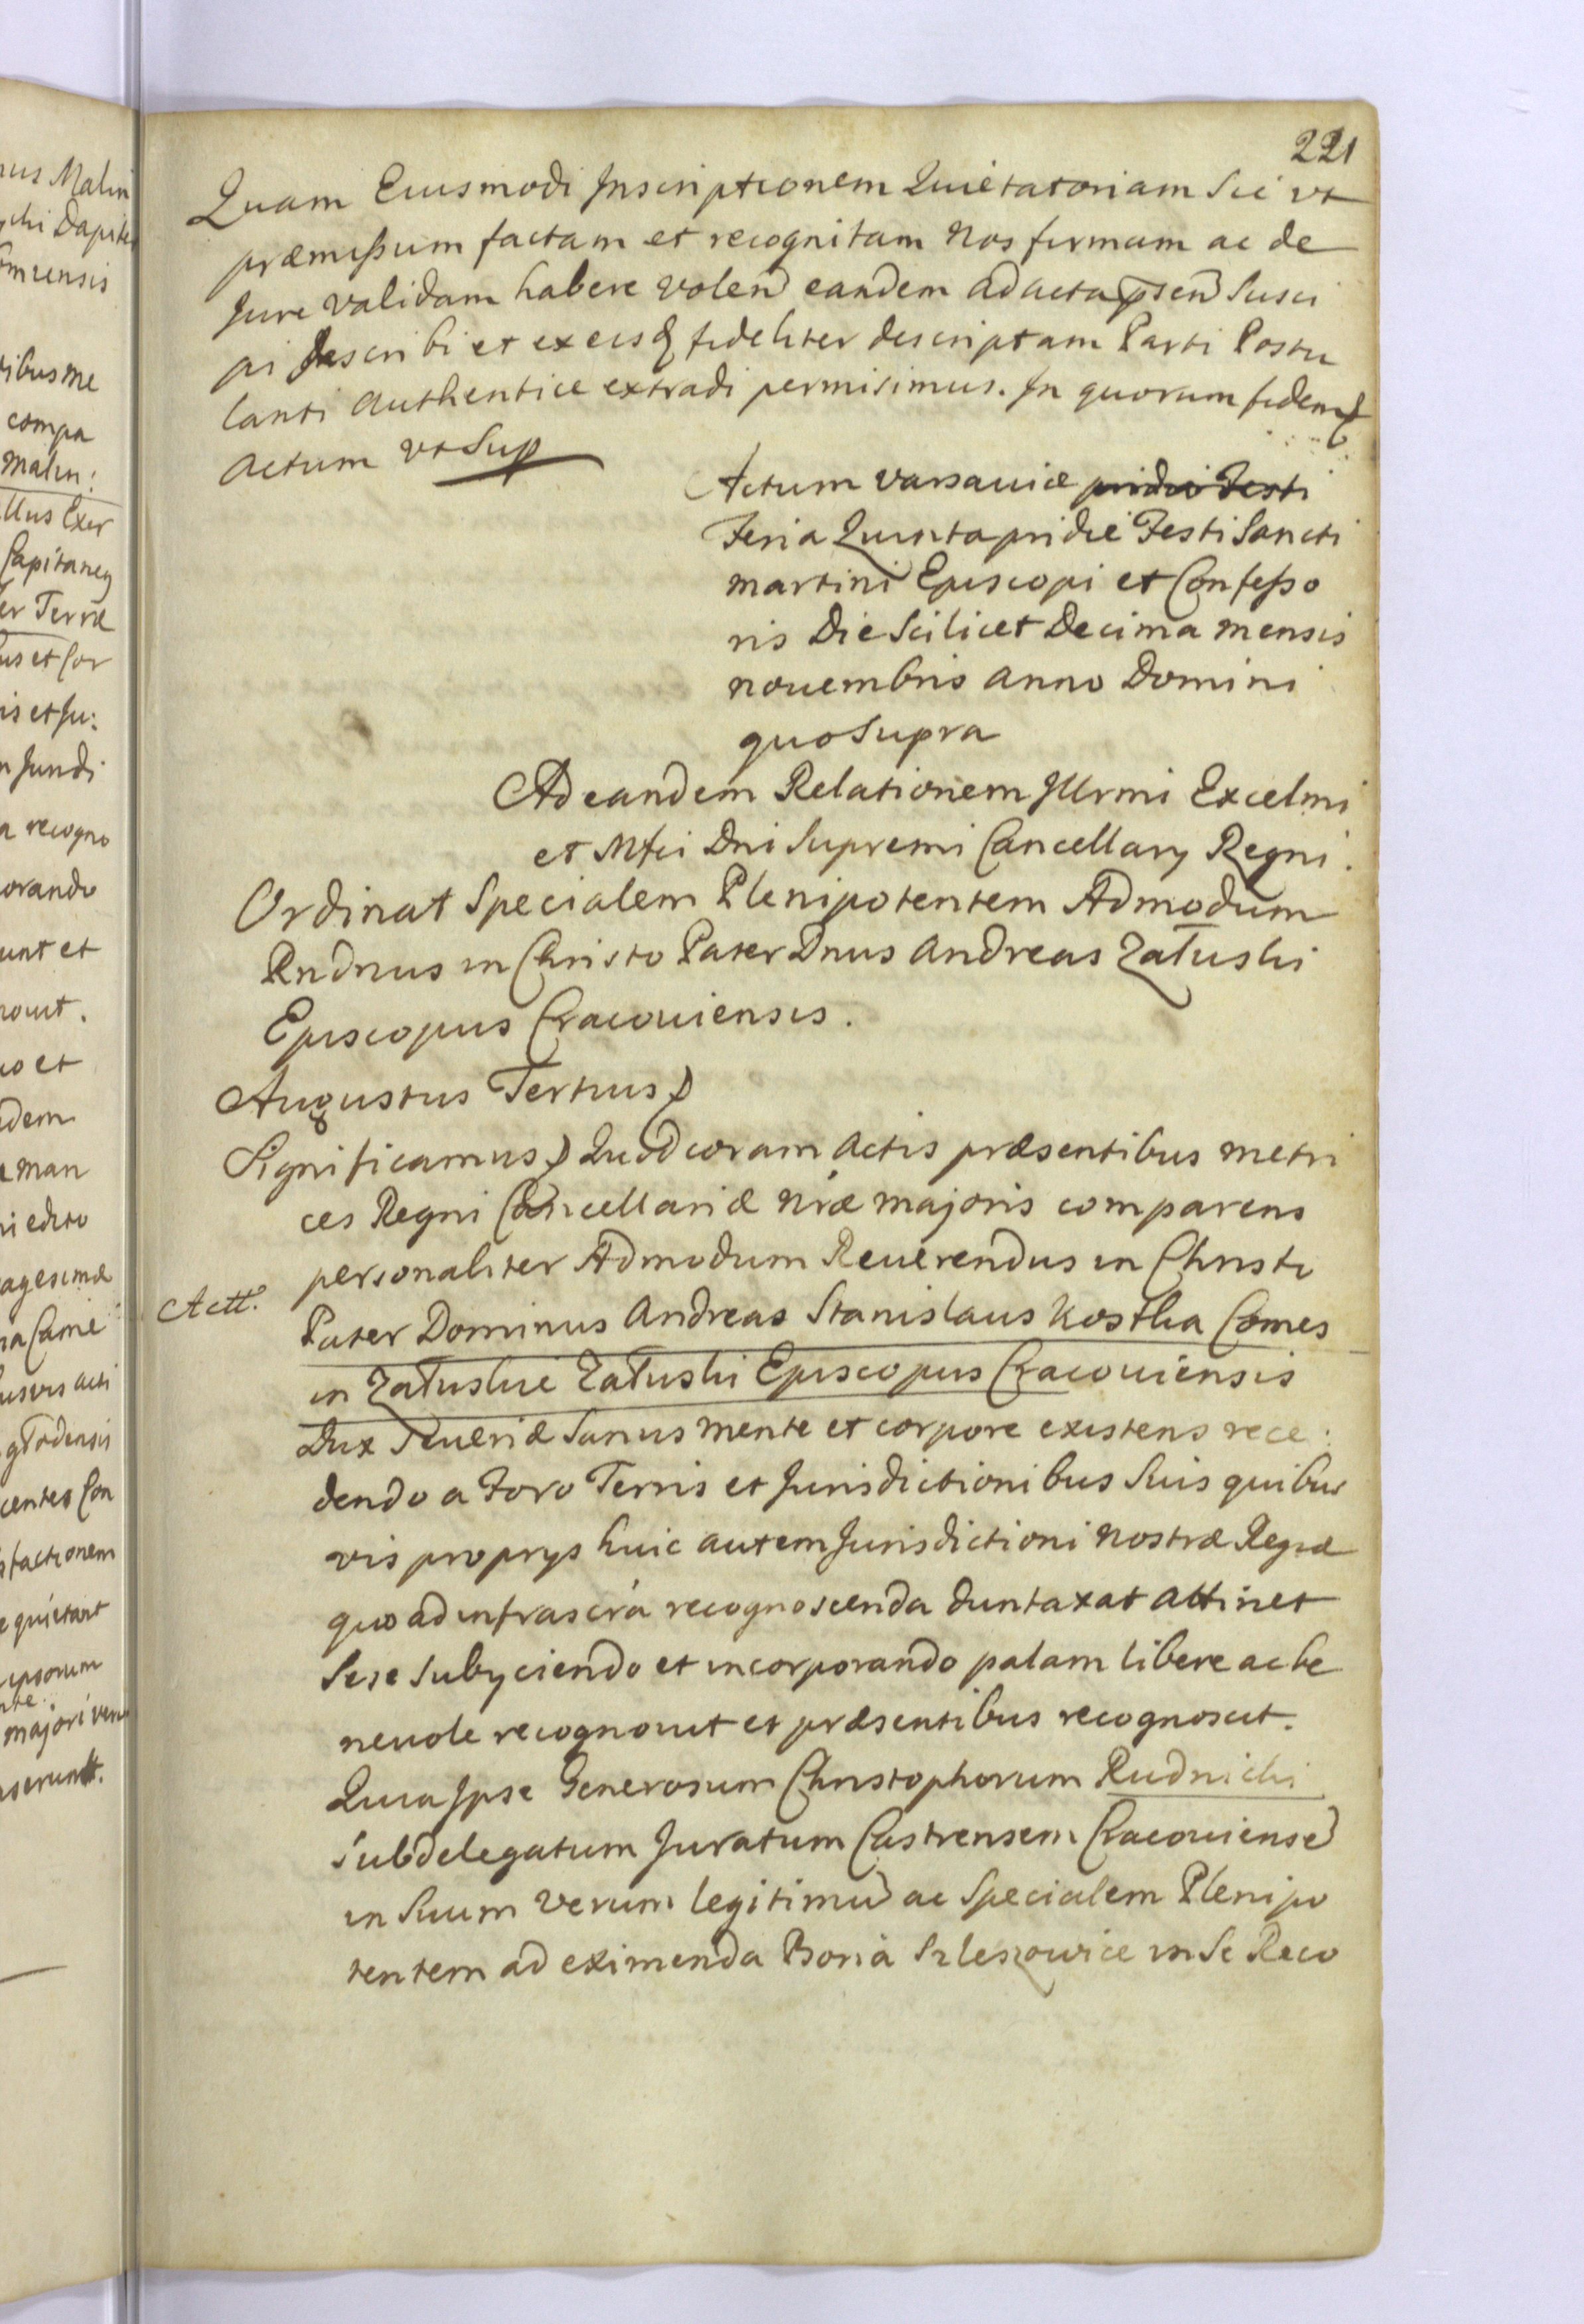 221
Quam Eiusmodi Inscriptionem Quietatoriam Sic vt
præmissum factam et recognitam Nos firmam ac de
Jure validam habere volen eandem ad acta psen Susci
pi Jnscribi et ex eisq fideliter descriptam Parti Postu
lanti Authentice extradi permisimus. In quorum fidem
Actum vt Sup
Actum Varsaviæ pridie Festi
Feria Quinta pridie Festi Sancti
Martini Episcopi et Confesso
ris Die Scilicet Decima Mensis
Novembris Anno Domini
quo Supra
Ad eandem Relationem Jllrmi Excelmi
et Mfci Dni Supremi Cancellarÿ Regni.
Ordinat Specialem Plenipotentem Admodum
Rndnus in Christo Pater Dnus Andreas Załuski
Episcopus Cracoviensis.
Augustus Tertius
Significamus Quod coram Actis præsentibus Metri
ces Regni Cancellariæ Nræ Majoris comparens
personaliter Admodum Reuerendus in Christo
Actt.
Pater Dominus Andreas Stanislaus Kostka Comes
in Załuskie Załuski Episcopus Cracoviensis
Dux Severiæ Sanus mente et corpore existens rece:
dendo a Foro Terris et Jurisdictionibus Suis quibus
vis proprÿs huic autem Jurisdictioni Nostræ Regiæ
quo ad infrascra recognoscenda duntaxat attinet
Sese Subÿciendo et incorporando palam libere ac be
nevole recognovit et præsentibus recognoscit.
Quia Ipse Generosum Christophorum Rudnicki
Subdelegatum Juratum Castrensem Cracoviense
in Suum Verum legitimu ac Specialem Plenipo
tentem ad eximenda Bona Szleszowice in Se Reco
nus Malin
chi Dapife
omiensis
ribus me
compa
Malin:
llus Exer
Capitaney
er Terræ
us et Cor
is et Ju:
n Jundi
a recogno
orando
unt et
novit.
uo et
dem
man
ni edito
agesimæ
na Came
usvis acti
godensis
centes Con
sfactionem
e quietavit
ipsorum
nte.
majori ven
serunt.